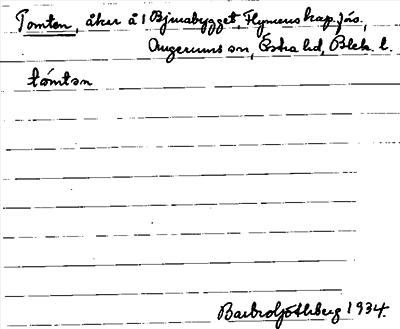 Tomten, åker å 1 Bjmabygget, Flymens kap. förs.,
Augerums sn, Östra hd, Blek. l.
tómtən
Barbro Söthberg 1934.